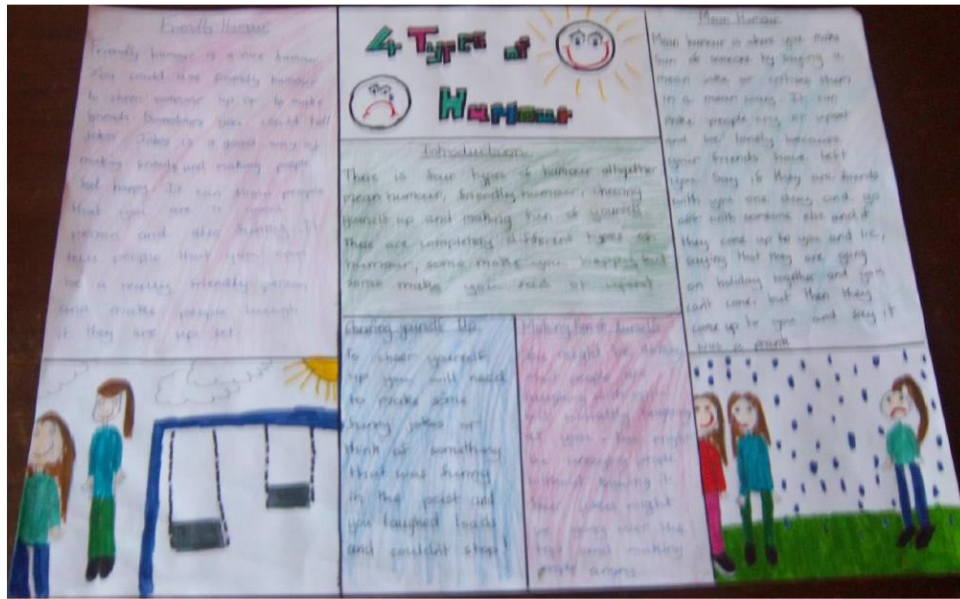 Friendly Humour
Friendly humour is a nice humour.
You could use friendly humour
to cheer someone up or to make
friends. Sometimes you could tell
jokes. Jokes is a good way of
making friends and making people
feel happy. It can show people
that you are a nice
person and also funny. It
tells people that you can
be a really friendly person
and makes people laugh
if they are up set.
4 Types of
Humour
Introduction
There is four types of humour altogether
mean humour, friendly humour, cheering
yourself up and making fun of yourself.
These are completely different types of
humour, some make you happy but
some make you sad or upset
Cheering yourself Up
To cheer yourself
up you will need
to make some
funny jokes or
think of something
that was funny
in the past and
you laughed loads
and couldn't stop!
Making fun of yourself
You might be
that people are
laughing with you
but actually laughing
at you. You might
be annoying people
without knowing it.
be going over the
top and making
people angry.
Mean Humour
Mean humour is where you make
fun of someone by saying a
mean joke or
in a mean way. It can
make people cry or upset
and be lonely because
your friends have left
you. Say if they are friends
with you one day and go
off with someone else and if
they come up to you and lie,
saying that they are going
on holiday together and you
can't come, but then they
come up to you and say it
was a prank